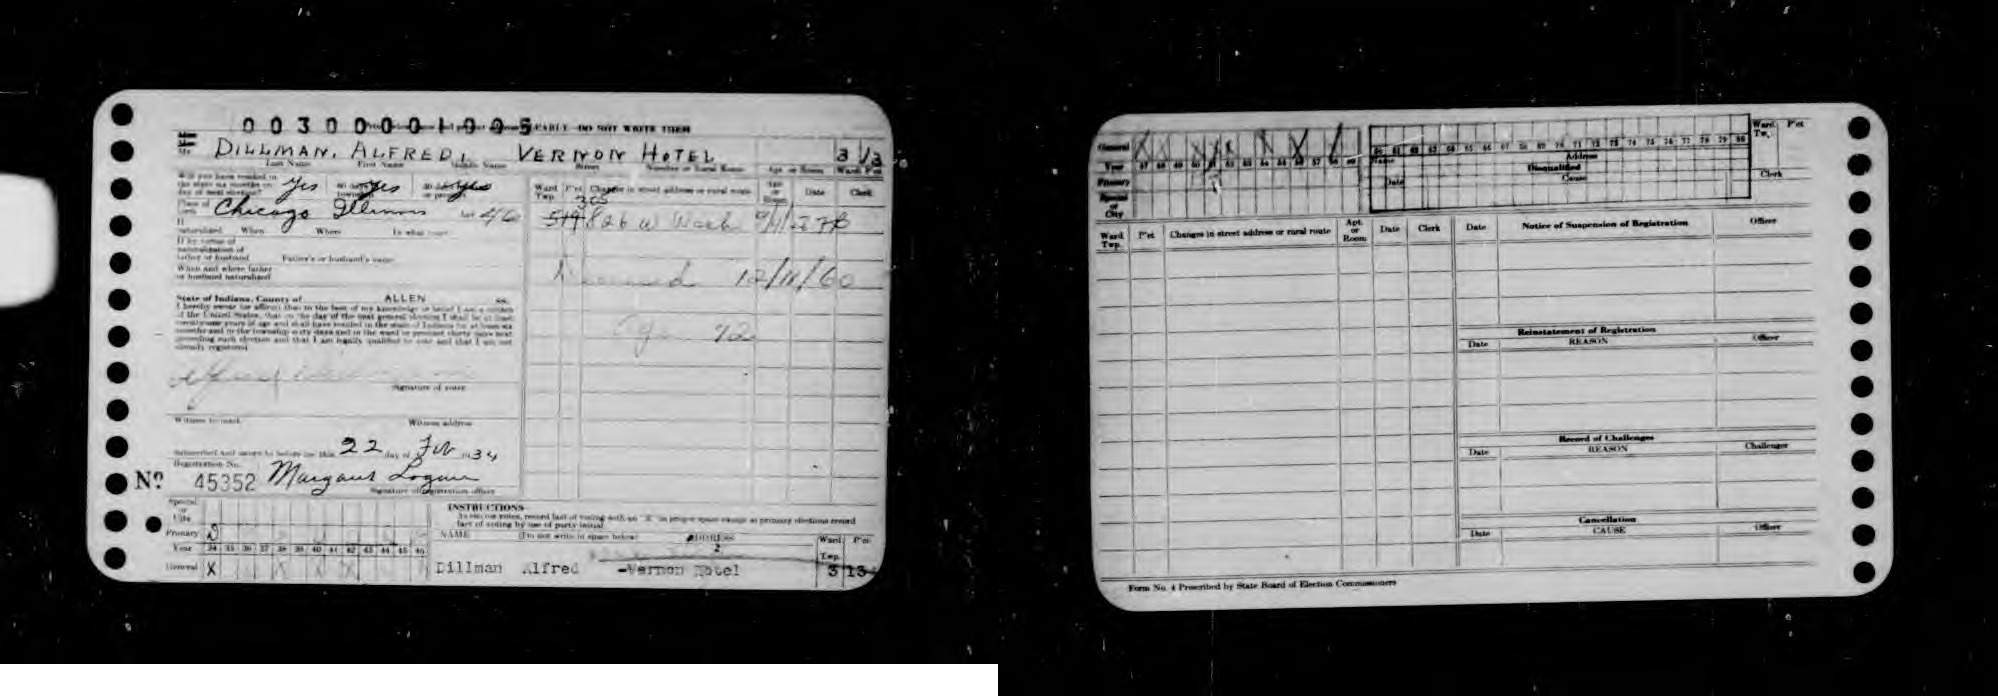 0 0 3 0 0 0 0 1 0 0 5 EARLY—DO NOT WRITE THEM
DILLMAN, ALFRED, VERNON HOTEL 3 13
Last Name First Name Middle Name Street Number or Rural Route Apt. or Room Ward P'ct
Will you have resided in
the state six months on
day of next election? Yes 60 days in township Yes 30 days in precinct Yes
Place of birth Chicago Illinois Age 46
If naturalized When Where In what court
If by virtue of
naturalization of
father or husband Father's or husband's name
When and where father
or husband naturalized
State of Indiana, County of ALLEN ss.
I hereby swear (or affirm) that to the best of my knowledge or belief I am a citizen
of the United States, that on the day of the next general election I shall be at least
twenty-one years of age and shall have resided in the state of Indiana for at least six
months and in the township sixty days and in the ward or precinct thirty days next
preceding such election and that I am legally qualified to vote and that I am not
already registered
Signature of voter
Witness to mark Witness address
Subscribed and sworn to before me this 22 day of Feb 1934
Registration No.
No 45352 Margaret Logan
Signature of registration officer
Ward Twp. P'ct Changes in street address or rural route Apt. or Room Date Clerk
305
519 826 W Wash
12/11/60
42
Special or City
Primary D
Year 34 35 36 37 38 39 40 41 42 43 44 45 46
General X
INSTRUCTIONS—
As elector votes, record fact of voting with an "X" in proper space except at primary elections record
fact of voting by use of party initial
NAME (Do not write in space below) ADDRESS Ward Twp. P'ct
Dillman Alfred -Vernon Hotel 3 13
General
Year 47 48 49 50 51 52 53 54 55 56 57 58 59
Primary
Special or City
60 61 62 63 64 65 66 67 68 69 70 71 72 73 74 75 76 77 78 79 80
Name Address
Disqualified
Date Cause
Ward Twp. P'ct
Clerk
Ward Twp. P'ct Changes in street address or rural route Apt. or Room Date Clerk
Date Notice of Suspension of Registration Officer
Reinstatement of Registration
Date REASON Officer
Record of Challenges
Date REASON Challenger
Cancellation
Date CAUSE Officer
Form No. 4 Prescribed by State Board of Election Commissioners